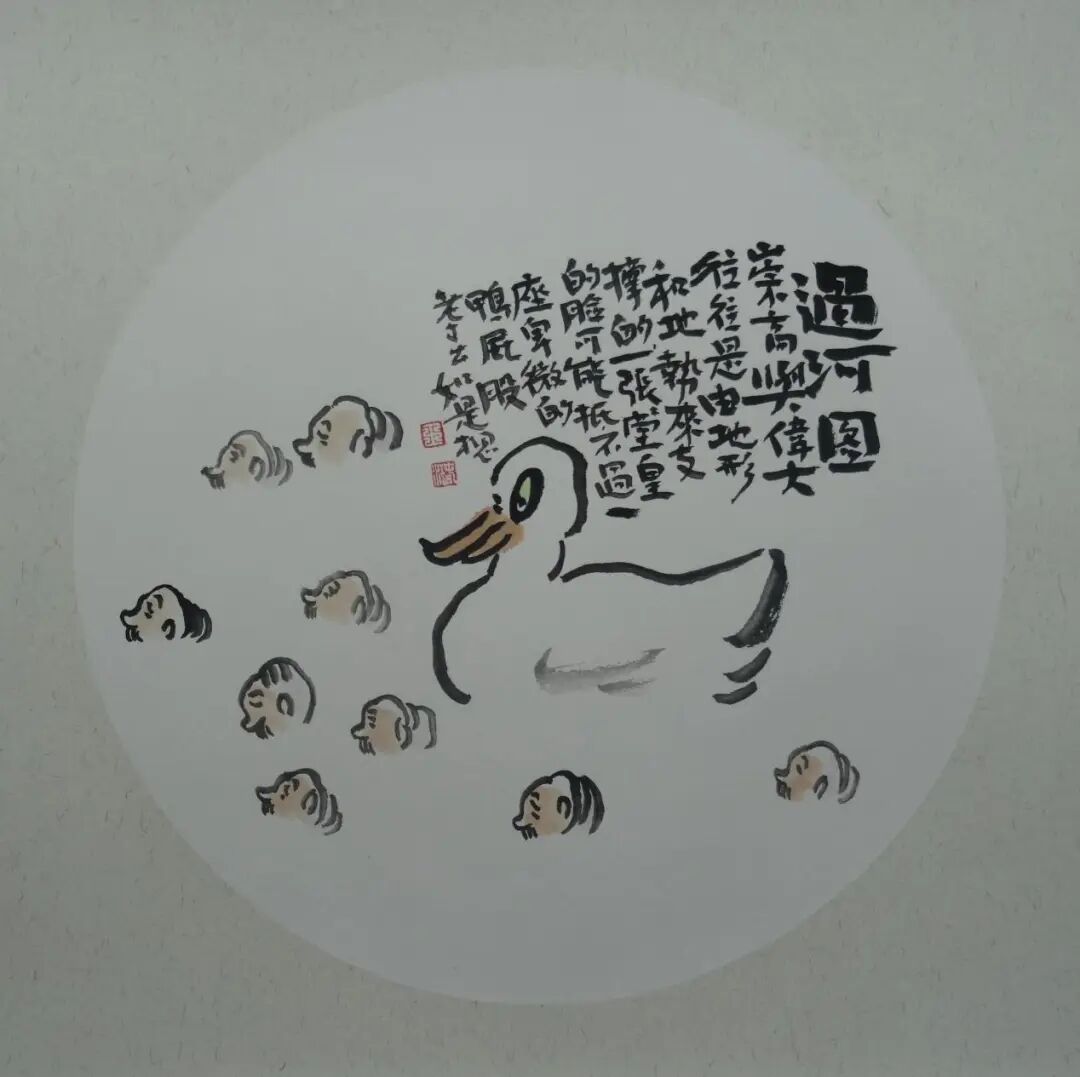 過河图
崇高與偉大
往往是由地形
和地勢來支
撐的一張堂皇
的臉可能抵不過一
座卑微的
鴨屁股
如是想